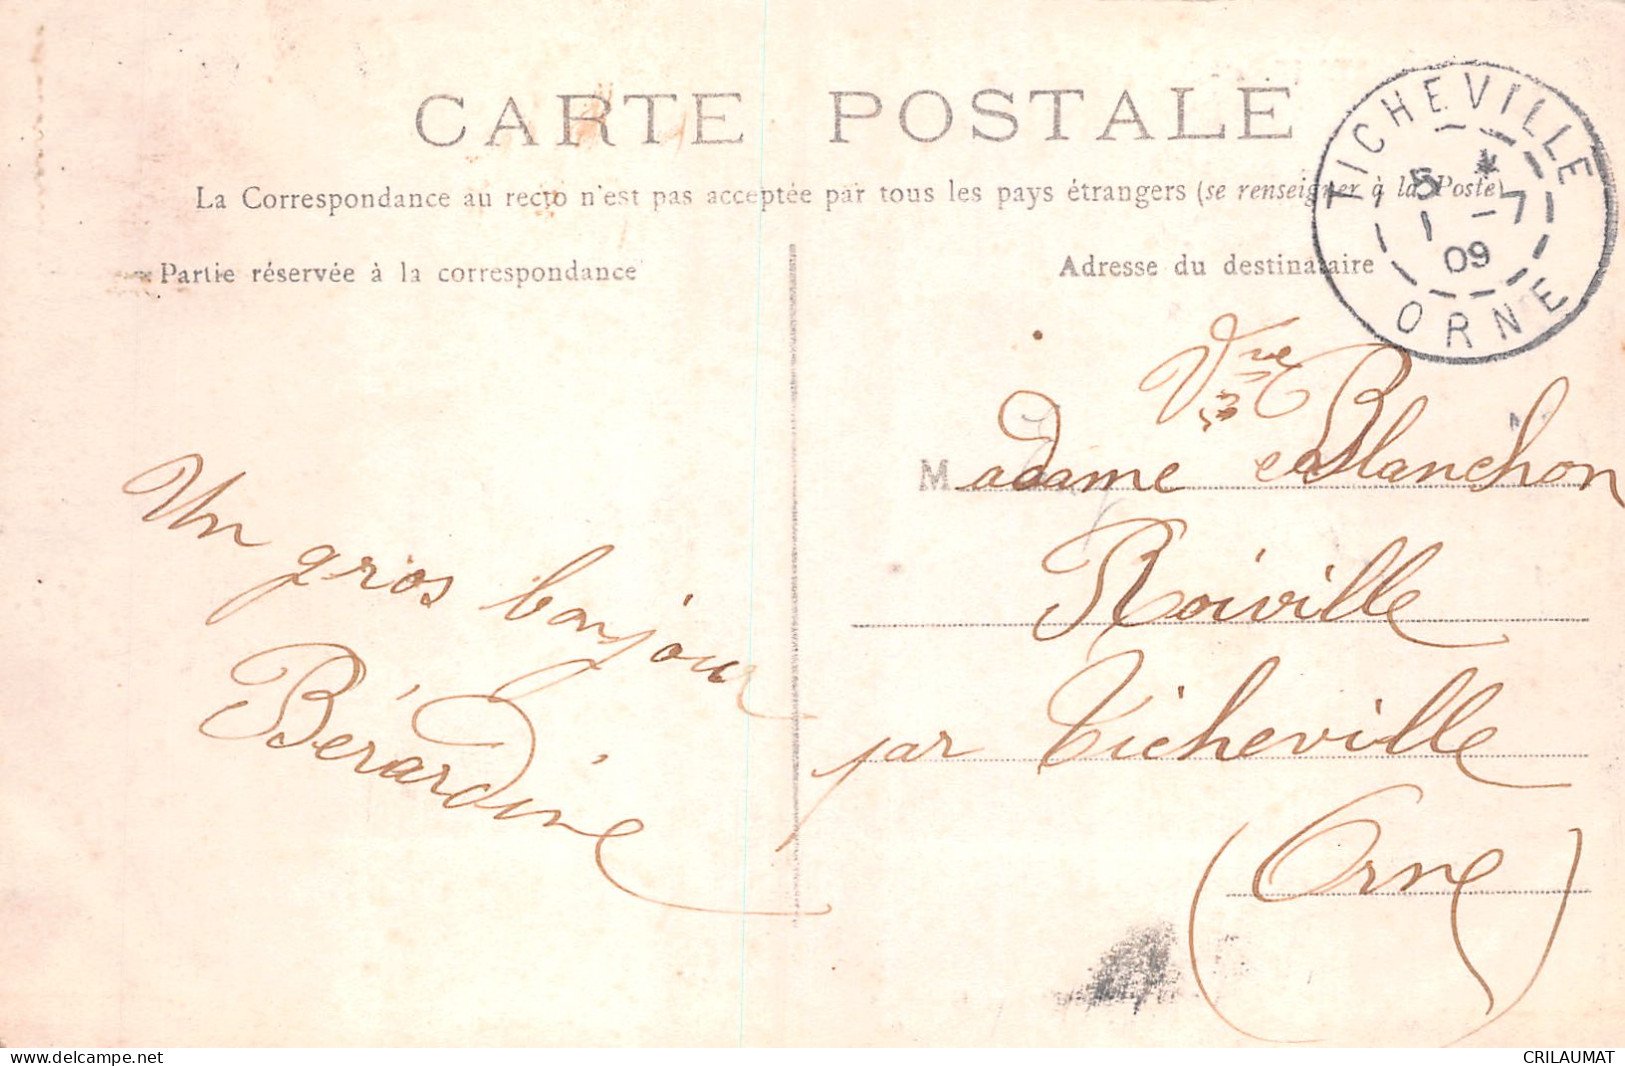 CARTE POSTALE
La Correspondance au recto n'est pas acceptée par tous les pays étrangers (se renseigner à la Poste)
Partie réservée à la correspondance
Adresse du destinataire
TICHEVILLE
5 *
1 -7
09
ORNE
Un gros bonjour
Bérardine
Vve
Madame Blanchon
Roiville
par Ticheville
(Orne)
www.delcampe.net
CRILAUMAT